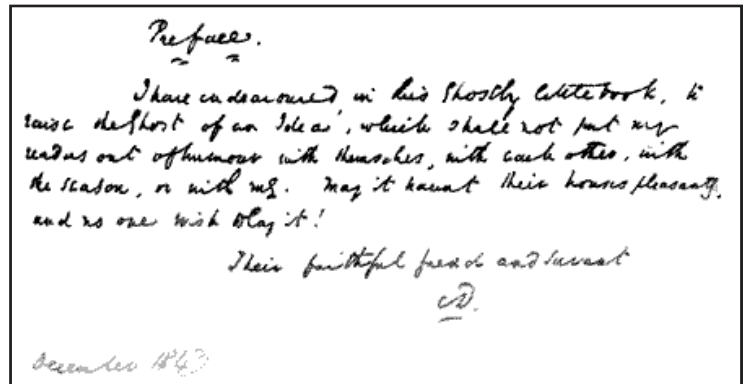 Preface.
I have endeavoured in this Ghostly little book, to
raise the Ghost of an Idea, which shall not put my
readers out of humour with themselves, with each other, with
the season, or with me. May it haunt their houses pleasantly,
and no one wish to lay it!
Their faithful friend and servant
CD.
December 1843